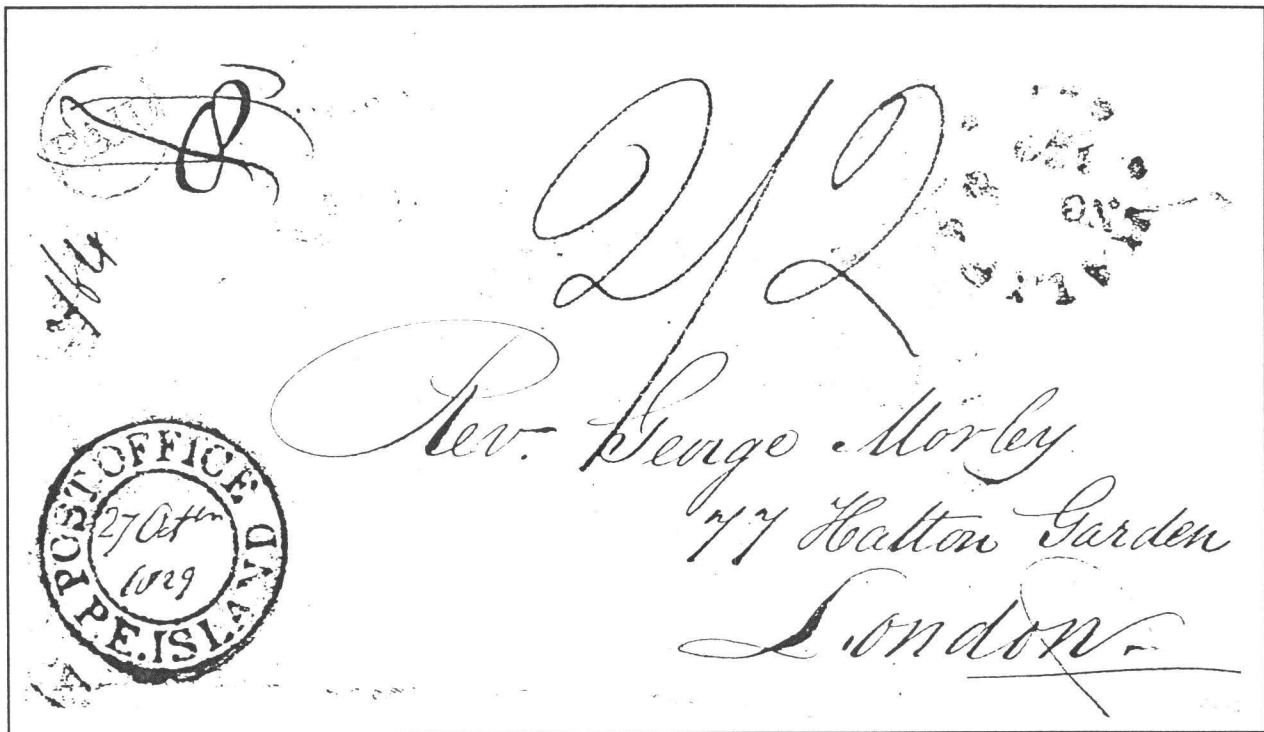 8
2/2
Rev. George Morley
77 Hatton Garden
London
POST OFFICE
P.E. ISLAND
27 Octbr
1829